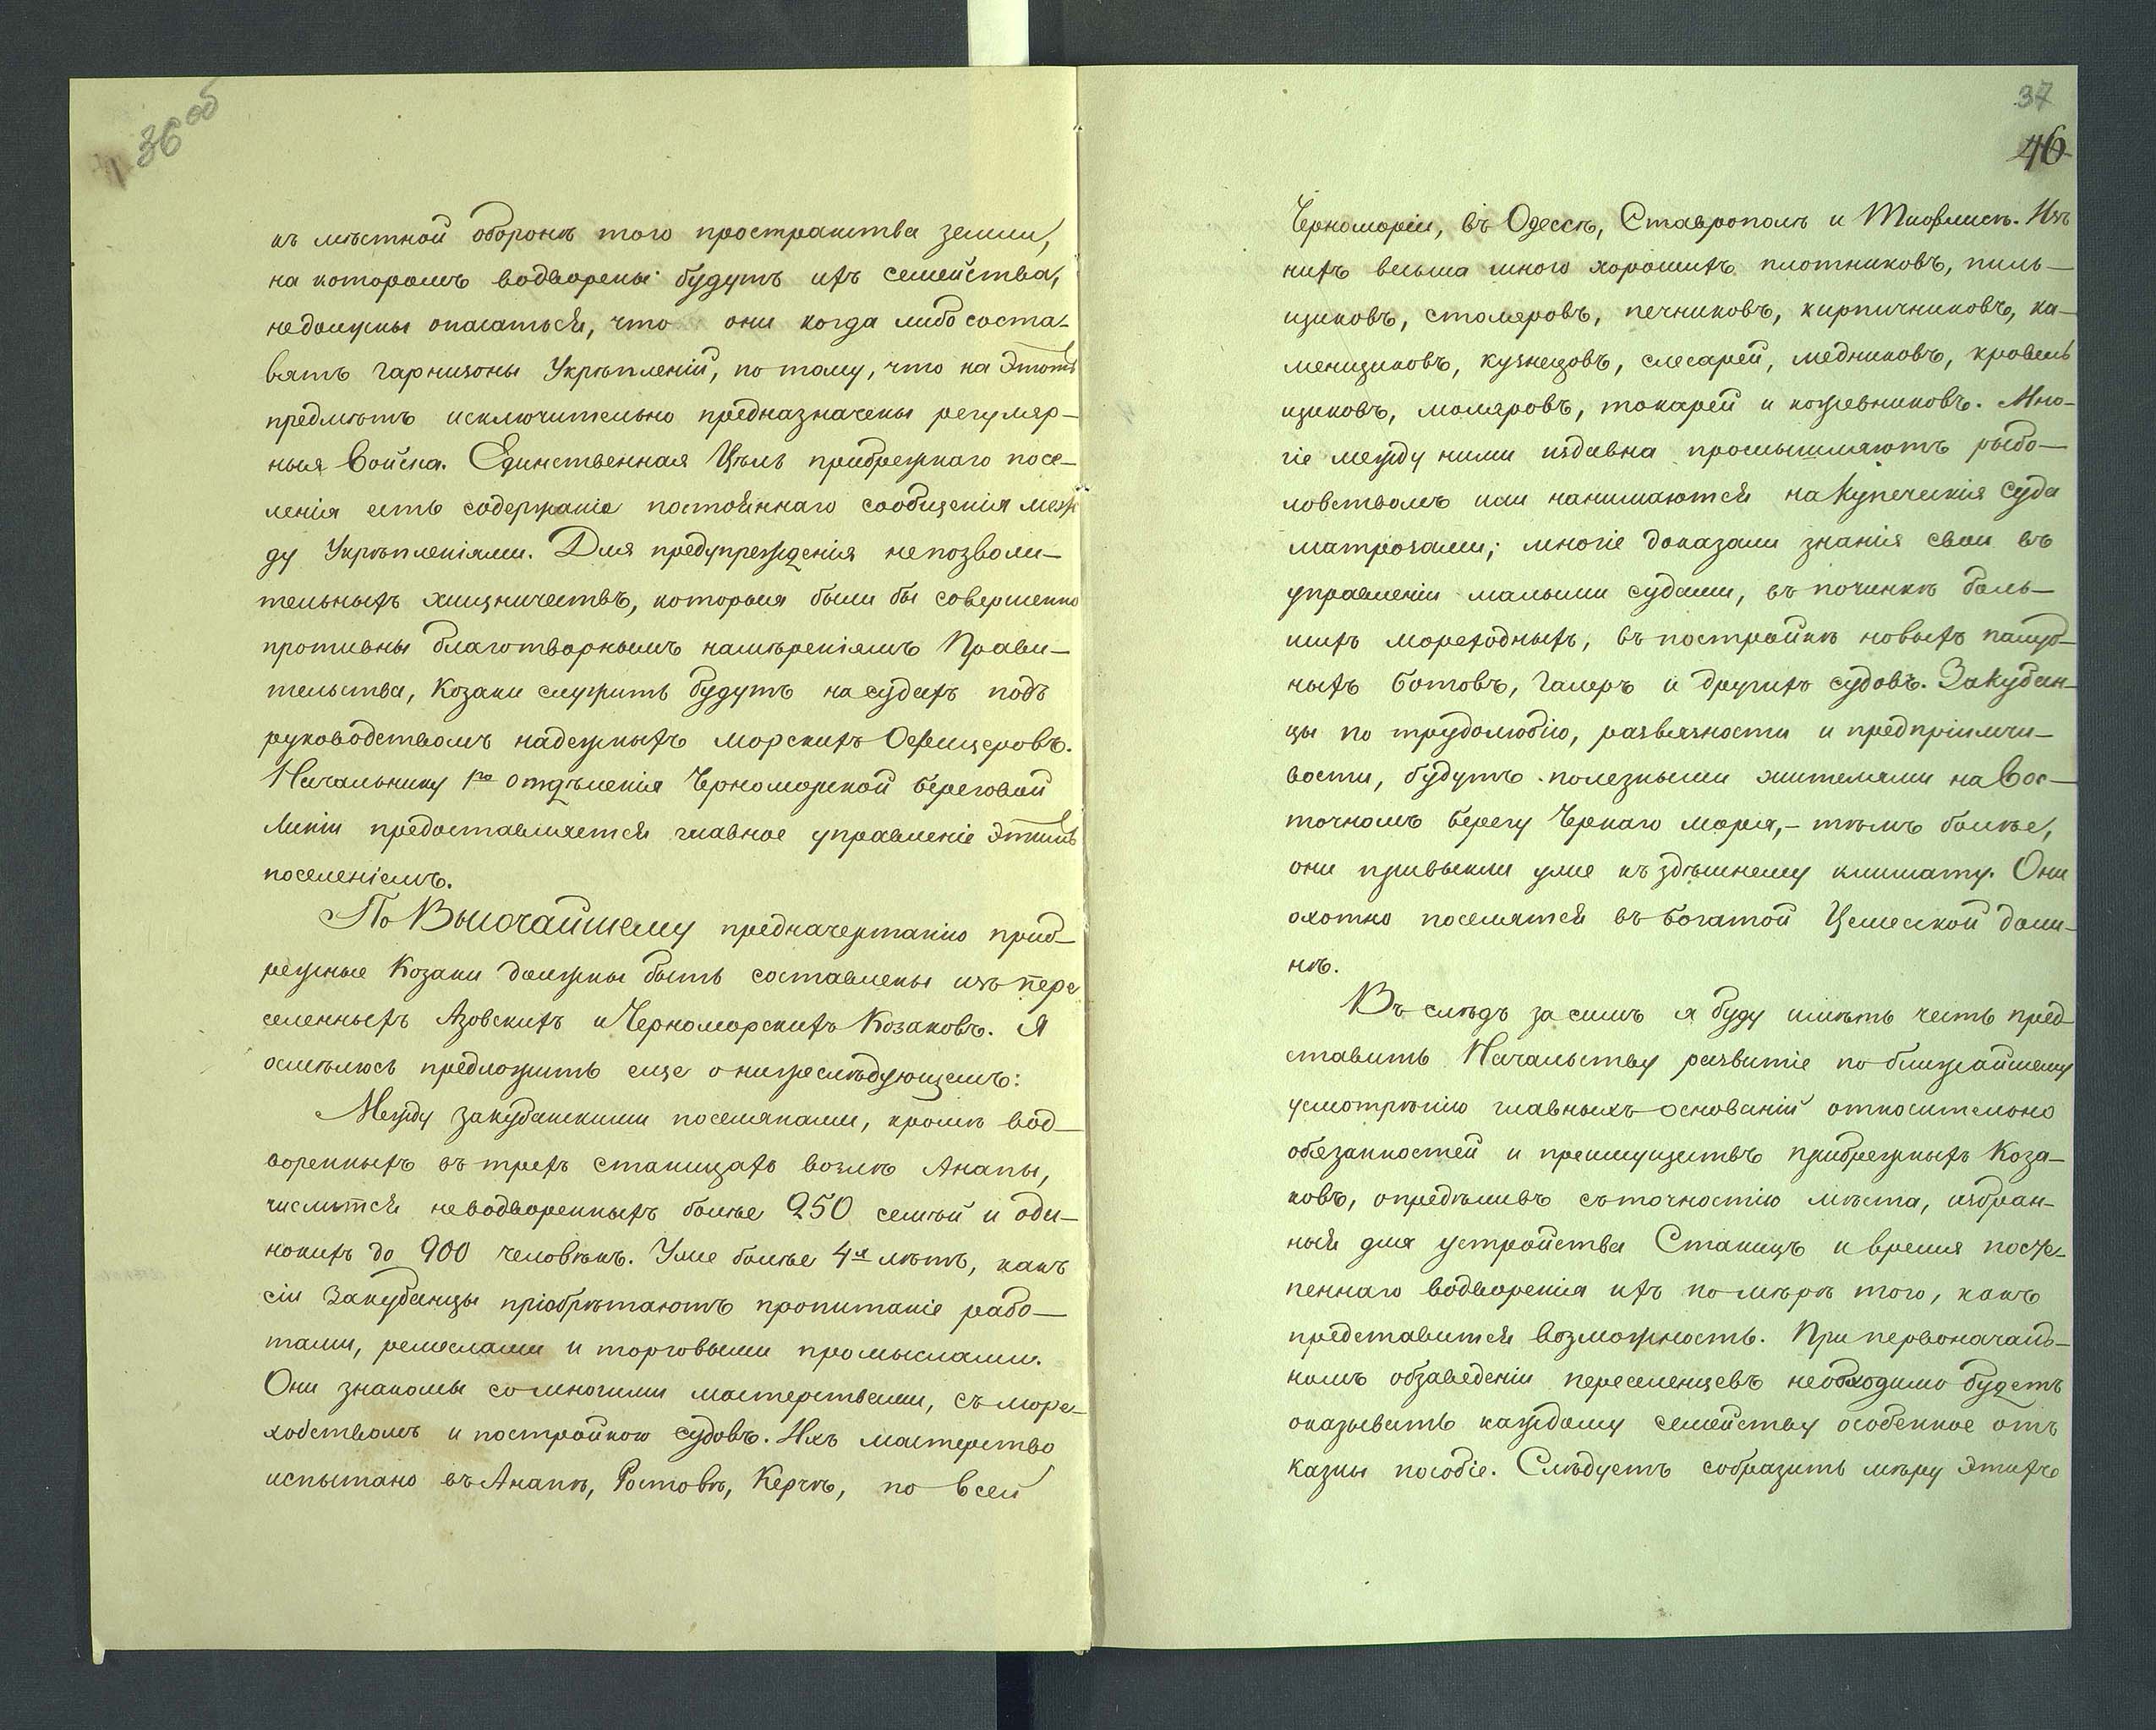 36 об
къ мѣстной оборонѣ того пространства земли,
на которомъ водворены будутъ ихъ семейства,
недолжны опасаться, что они когда либо соста-
вятъ гарнизоны Укрѣпленій, по тому, что на этотъ
предмѣтъ исключительно предназначены регуляр-
ныя Войска. Единственная Цѣль прибрежнаго посе-
ленія есть содержаніе постояннаго сообщенія меж
ду Укрѣпленіями. Для предупрежденія непозволи-
тельныхъ хищничествъ, которыя были бы совершенно
противны благотворнымъ намѣреніямъ Прави-
тельства, Козаки служить будутъ на судахъ подъ
руководствомъ надежныхъ морскихъ Офицеровъ.
Начальнику 1го отдѣленія Черноморской береговой
Линіи предоставляется главное управленіе этимъ
поселеніемъ.
По Высочайшему предначертанію приб-
режные Козаки должны быть составлены изъ пере
селенныхъ Азовскихъ и Черноморскихъ Козаковъ. Я
осмѣлюсь предложить еще о нижеслѣдующемъ:
Между закубанскими поселянами, кромѣ вод-
воренныхъ въ трехъ станицахъ возлѣ Анапы,
числится неводворенныхъ болѣе 250 семѣй и оди-
нокихъ до 900 человѣкъ. Уже болѣе 4х лѣтъ, какъ
сіи Закубанцы пріобрѣтаютъ пропитаніе рабо-
тами, ремеслами и торговыми промыслами.
Они знакомы со многими мастерствами, съ море-
ходствомъ и постройкою судовъ. Ихъ мастерство
испытано въ Анапѣ, Ростовѣ, Керчѣ, по всей
37
46
Черноморіи, въ Одессѣ, Ставрополѣ и Тифлисѣ. Изъ
нихъ весьма много хорошихъ плотниковъ, пиль-
щиковъ, столяровъ, печниковъ, кирпичниковъ, ка-
менщиковъ, кузнецовъ, слесарей, медниковъ, кровель
щиковъ, моляровъ, токарей и кожевниковъ. Мно-
гіе между ними издавна промышляютъ рыбо-
ловствомъ или нанимаются на купеческія суда
матрозами; многіе доказали знанія свои въ
управленіи малыми судами, въ починкѣ боль-
шихъ мореходныхъ, въ постройкѣ новыхъ палуб-
ныхъ ботовъ, галеръ и другихъ судовъ. Закубан-
цы по трудолюбію, развязности и предпріимчи-
вости, будутъ полезными жителями на Вос-
точномъ берегу Чернаго моря,- тѣмъ болѣе,
они привыкли уже къ здѣшнему климату. Они
охотно поселятся въ богатой Цемесской доли-
нѣ.
Въ слѣдъ за симъ я буду имѣть честь пред-
ставить Начальству развитіе по ближайшему
усмотрѣнію главныхъ основаній относительно
обязанностей и преимуществъ прибрежныхъ Коза-
ковъ, опредѣливъ съ точностію мѣста, избран-
ныя для устройства Станицъ и время посте-
пеннаго водворенія ихъ по мѣрѣ того, какъ
представится возможность. При первоначаль-
номъ обзаведеніи переселенцевъ необходимо будетъ
оказывать каждому семейству особенное отъ
казны пособіе. Слѣдуетъ собразить мѣру этихъ